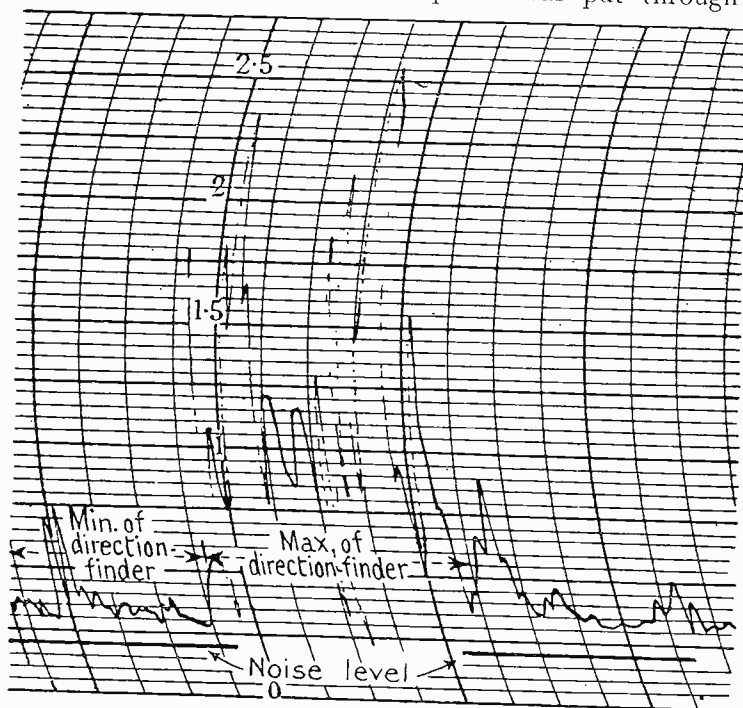 put through
2·5
2
1·5
1
Min. of
direction-
finder
Max. of
direction-finder
Noise level
0